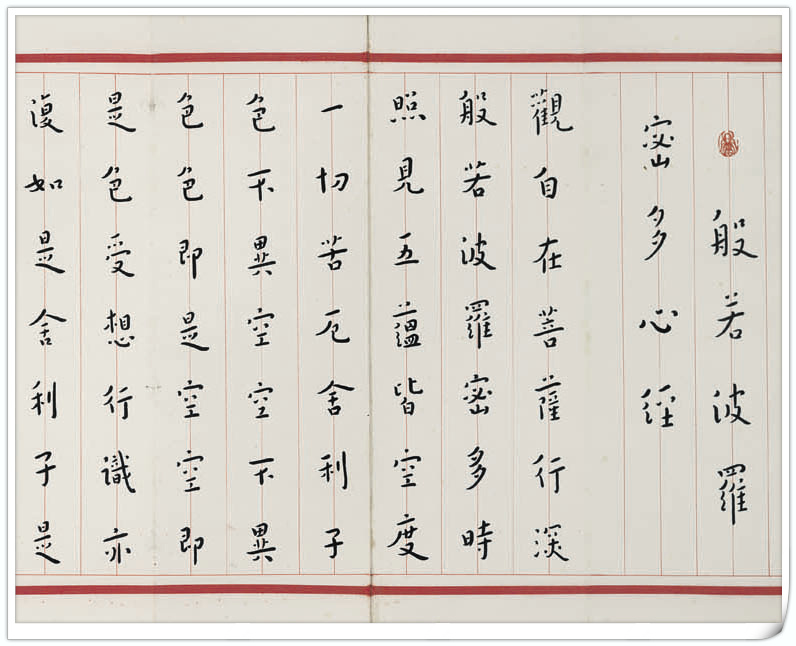 般若波羅
密多心經
觀自在菩薩行深
般若波羅密多時
照見五蘊皆空度
一切苦厄舍利子
色不異空空不異
色色即是空空即
是色受想行識亦
復如是舍利子是